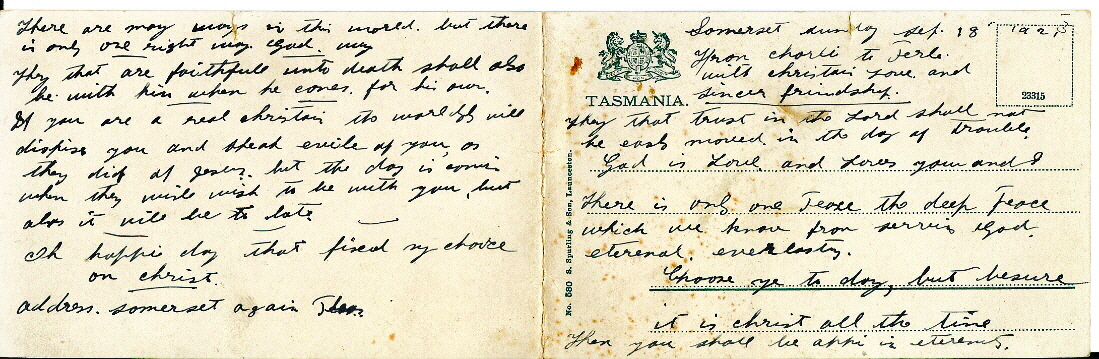 There are may ways in this world. but there
is only one right way. God. way
They that are faithfull unto death shall also
be with him when he comes. for his own.
If you are a real christain the worldly will
dispise you and speak evile of you, as
they did of Jesus. but the day is comin
when they will wish to be with you, but
alas it will be to late
Oh happie day that fixed my choice
on christ.
address. somerset again
Somerset sunday sep. 18
From charli to Ferli.
with christain love and
sincer friendship.
TASMANIA.
23315
They that trust in the Lord shall not
be easly moved in the day of trouble
God is Love. and Loves you and I
There is only one Peace the deep Peace
which we know from servin God.
eterenal. everlasty.
Choose ye to day, but besure
it is christ all the time
Then you shall be appi in eterenty.
No. 680 S. Spurling & Son, Launceston.